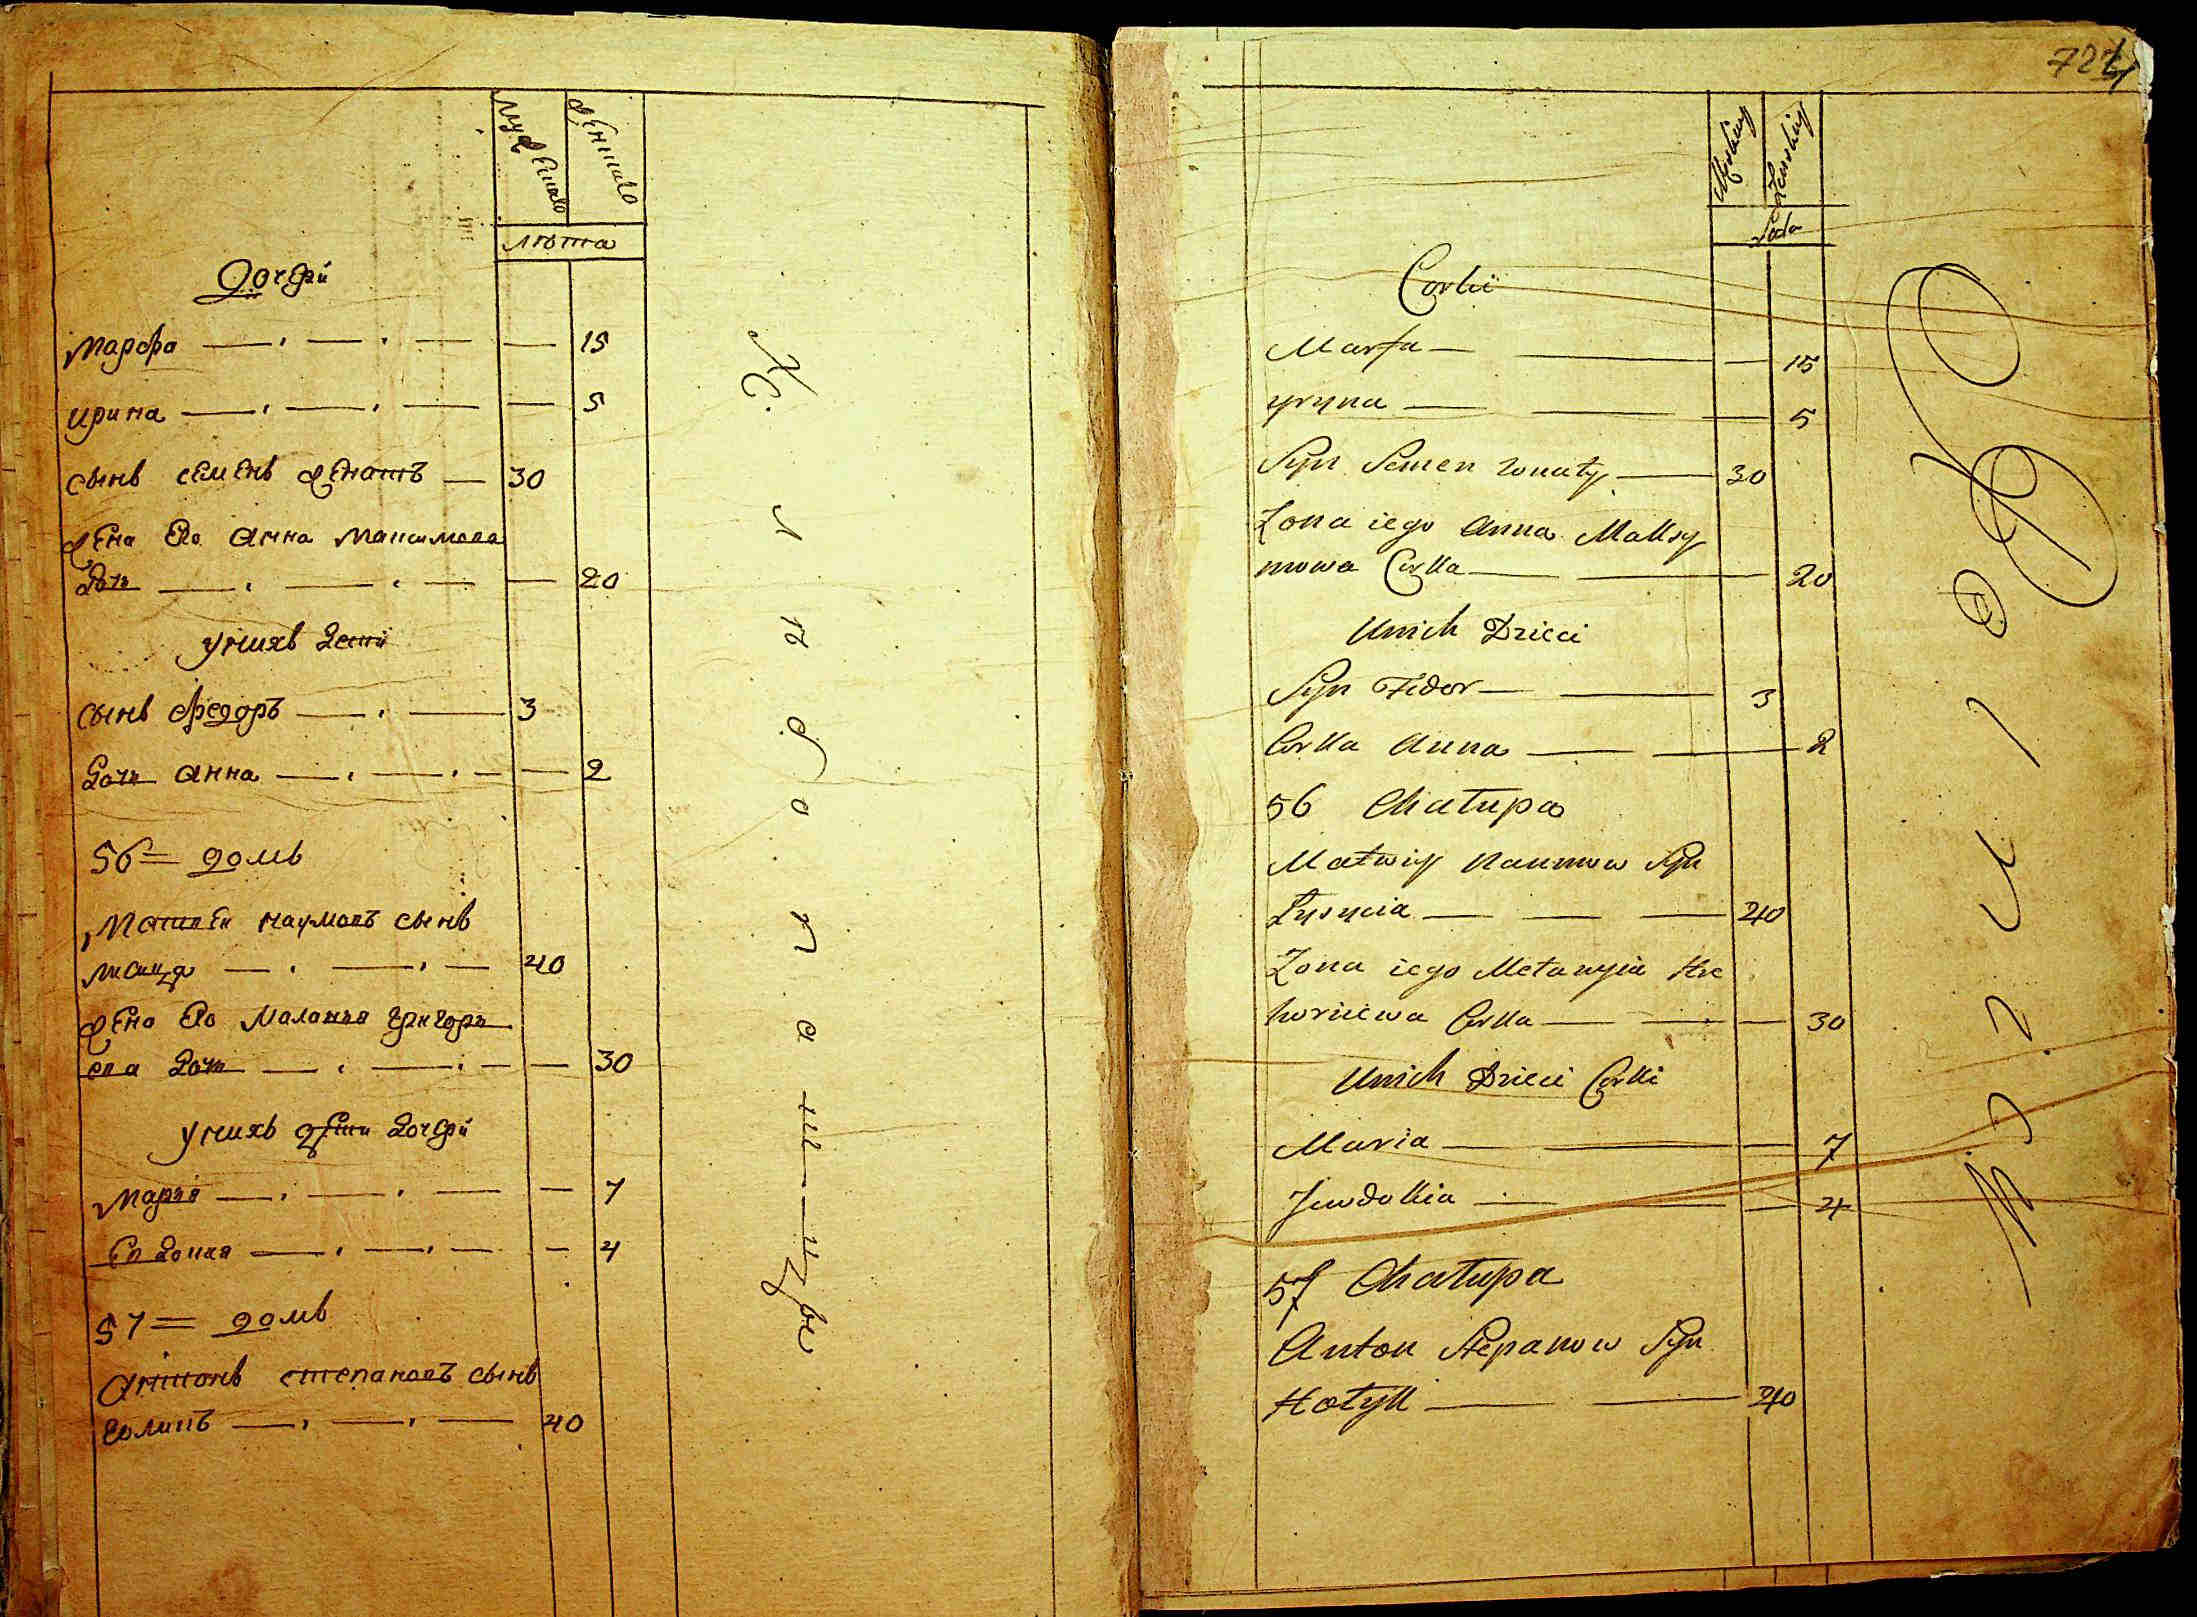 Мужеска
Женска
лѣта
Дочери
Марфа — — — — 15
Ирина — — — — 5
сынъ семенъ женатъ — 30
жена его Анна Максимова
дочь — — — — 20
у нихъ дети
сынъ Федоръ — — 3
дочь Анна — — — — 2
56 = домъ
Матвей наумовъ сынъ
лисица — — — 40
жена его Маланья Григорь
ева дочь — — — — 30
у нихъ дети дочери
Марья — — — — 7
Евдокия — — — — 4
57 = домъ
Антонъ степановъ сынъ
голикъ — — — 40
724
Męskiey
Żenskiey
Lada
Corki
Marfa — — — 15
yryna — — — 5
Syn Semen żonaty — 30
Żona iego Anna Maksy
mowa Corka — — 20
Unich Dzieci
Syn Fidor — — 3
Corka Anna — — 2
56 Chałupa
Matwiy Naumow Syn
Łysycia — — — 40
Żona iego Mełanyia Hre
horiiewa Corka — — — 30
Unich Dzieci Corki
Maria — — 7
Jewdokia — — — 4
57 Chałupa
Anton Stepanow Syn
Hołyk — — 40